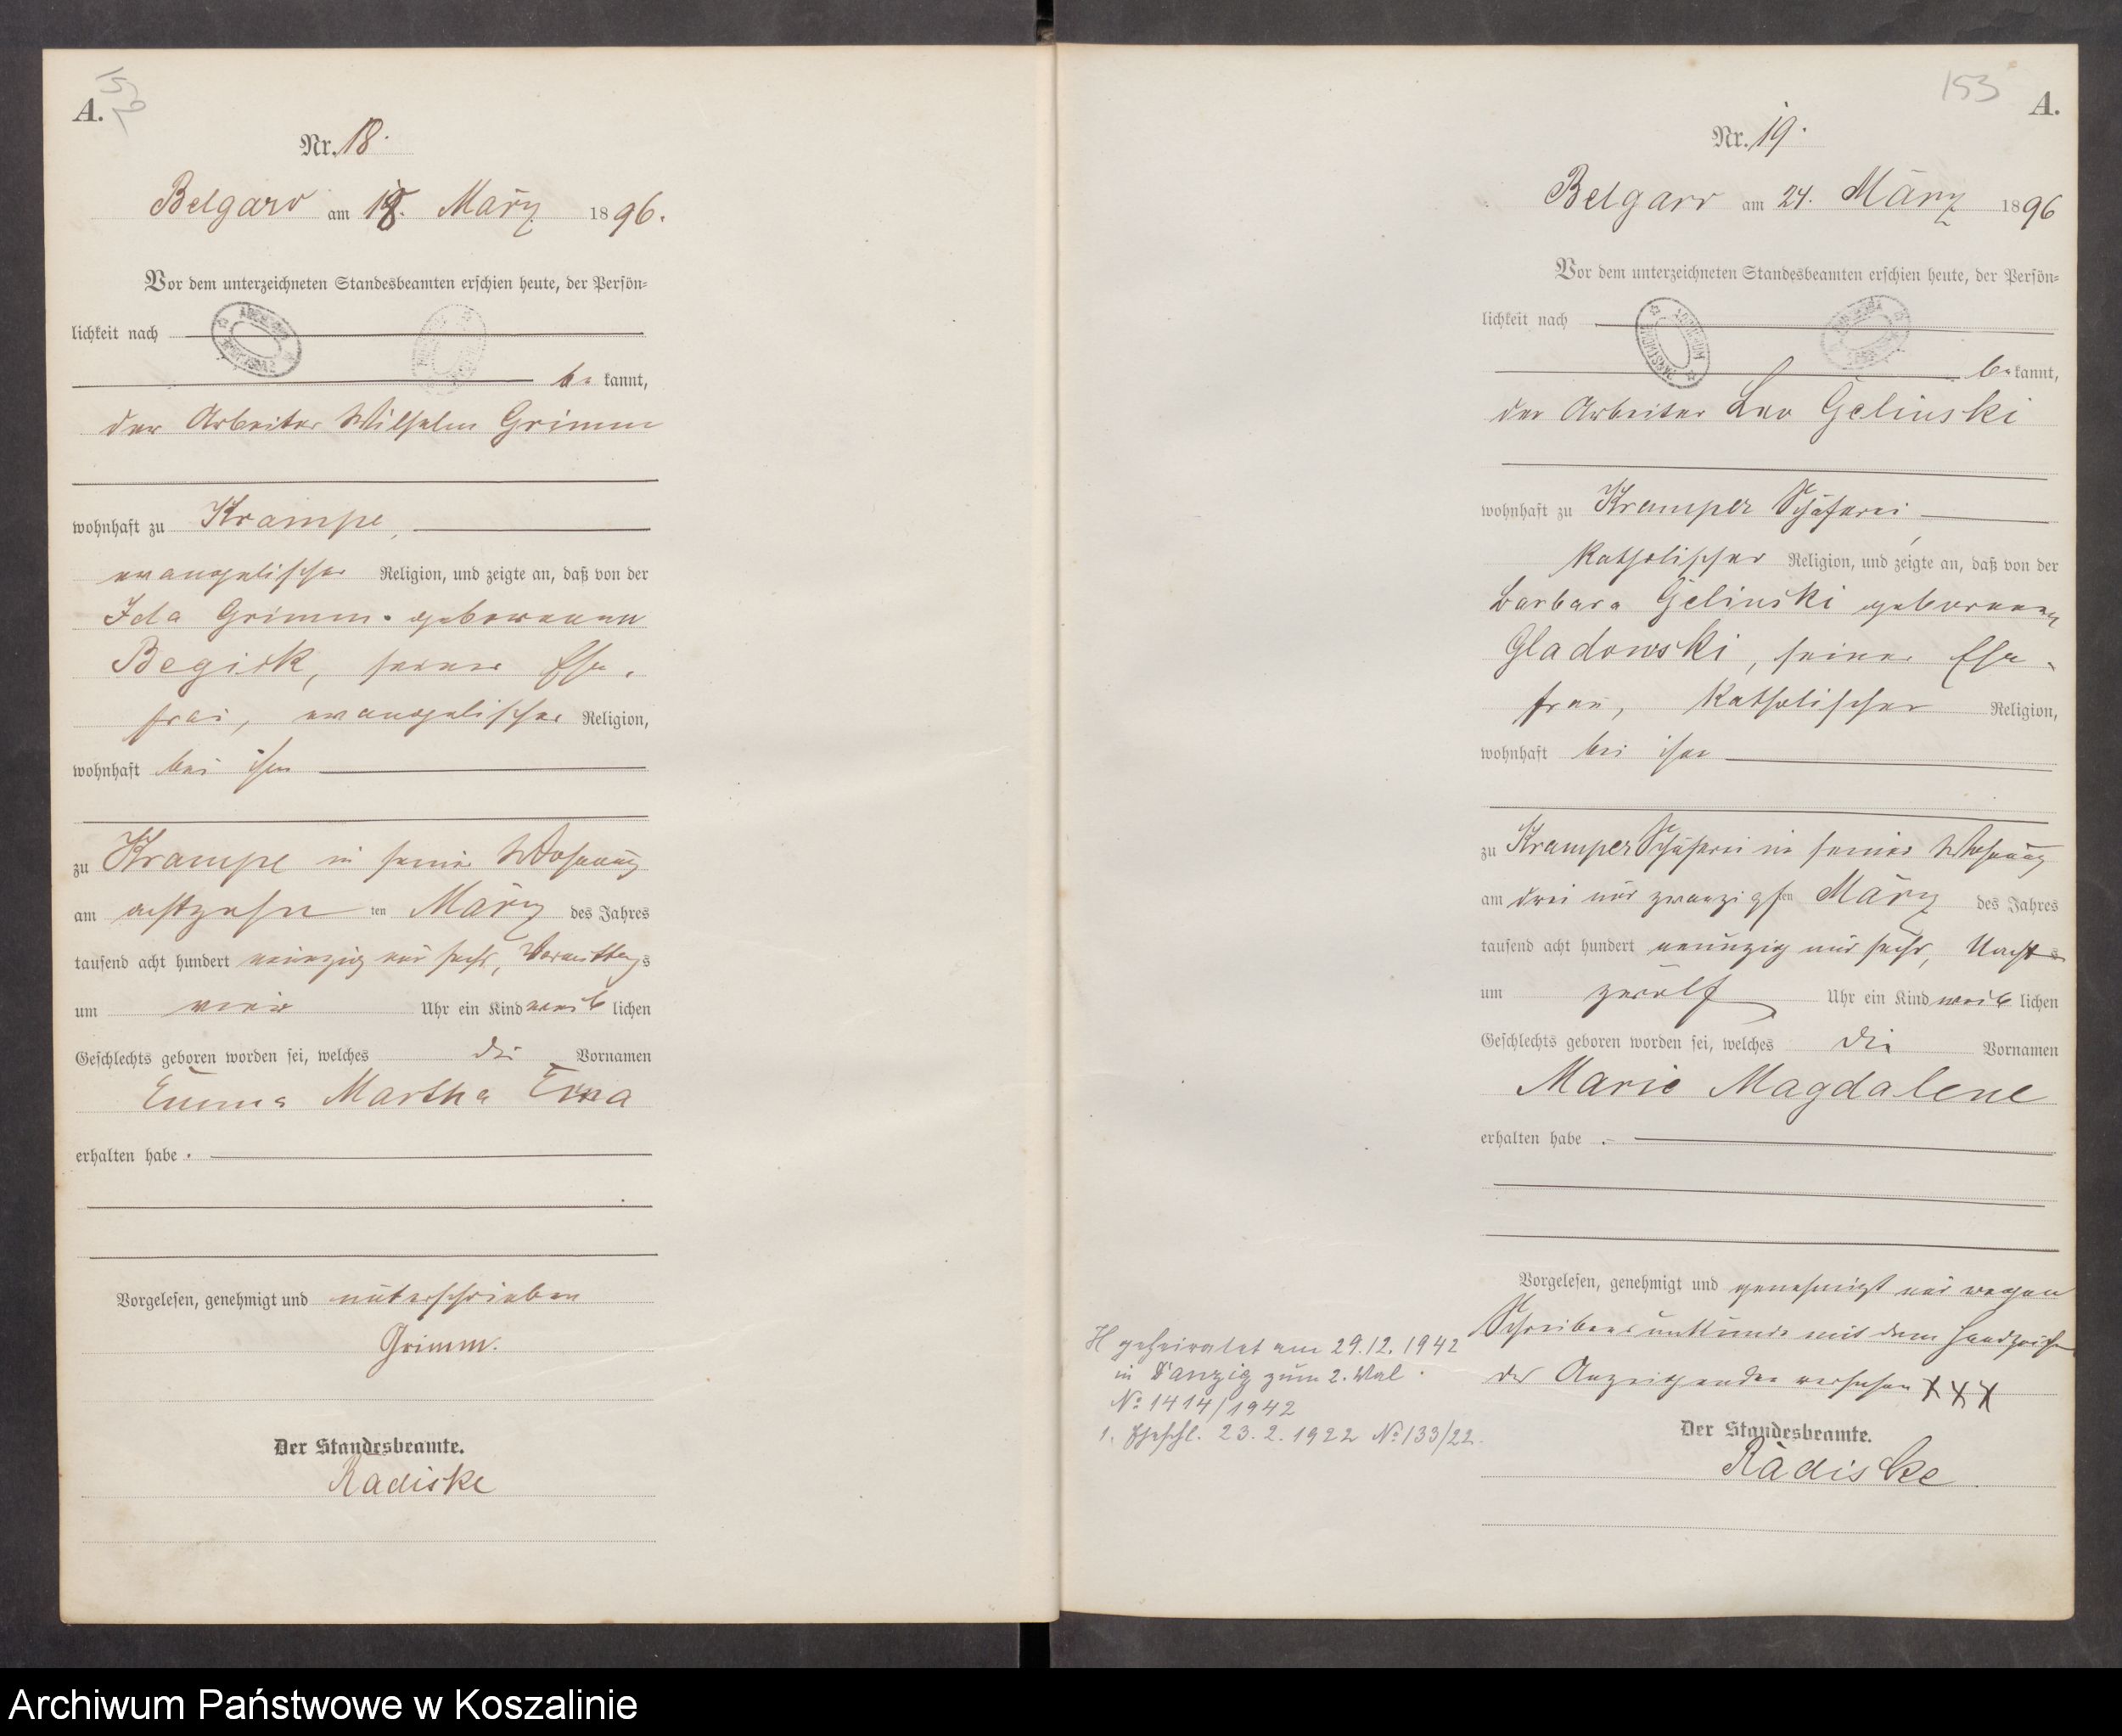 A.
Nr. 18.
Belgard am 18. März 1896.
Vor dem unterzeichneten Standesbeamten erschien heute, der Persön-
lichkeit nach
be kannt,
der Arbeiter Wilhelm Grimm
wohnhaft zu Krampe,
evangelischer Religion, und zeigte an, daß von der
Ida Grimm geborenen
Begisk, seiner Ehe-
frau, evangelischer Religion,
wohnhaft bei ihm
zu Krampe in seiner Wohnung
am achtzehn ten März des Jahres
tausend acht hundert neunzig und sechs, Vormittags
um vier Uhr ein Kind weib lichen
Geschlechts geboren worden sei, welches die Vornamen
Emma Martha Erna
erhalten habe.
Vorgelesen, genehmigt und unterschrieben
Grimm.
Der Standesbeamte.
Radiske
153 A.
Nr. 19.
Belgard am 24. März 1896
Vor dem unterzeichneten Standesbeamten erschien heute, der Persön-
lichkeit nach
be kannt,
der Arbeiter Leo Gelinski
wohnhaft zu Kramper Schäferei
katholischer Religion, und zeigte an, daß von der
Barbara Gelinski geborenen
Gladowski, seiner Ehe-
frau, katholischer Religion,
wohnhaft bei ihm
zu Kramper Schäferei in seiner Wohnung
am drei und zwanzigsten März des Jahres
tausend acht hundert neunzig und sechs, Nachts
um zwölf Uhr ein Kind weib lichen
Geschlechts geboren worden sei, welches die Vornamen
Marie Magdalene
erhalten habe.
Vorgelesen, genehmigt und genehmigt und wegen
Schreibensunkunde mit dem Handzeichen
der Anzeigenden versehen XXX
Der Standesbeamte.
Radiske
H geheiratet am 29.12.1942
in Danzig zum 2. Mal.
No 1414/1942
1. Eheschl. 23.2.1922 No 133/22.
Archiwum Państwowe w Koszalinie